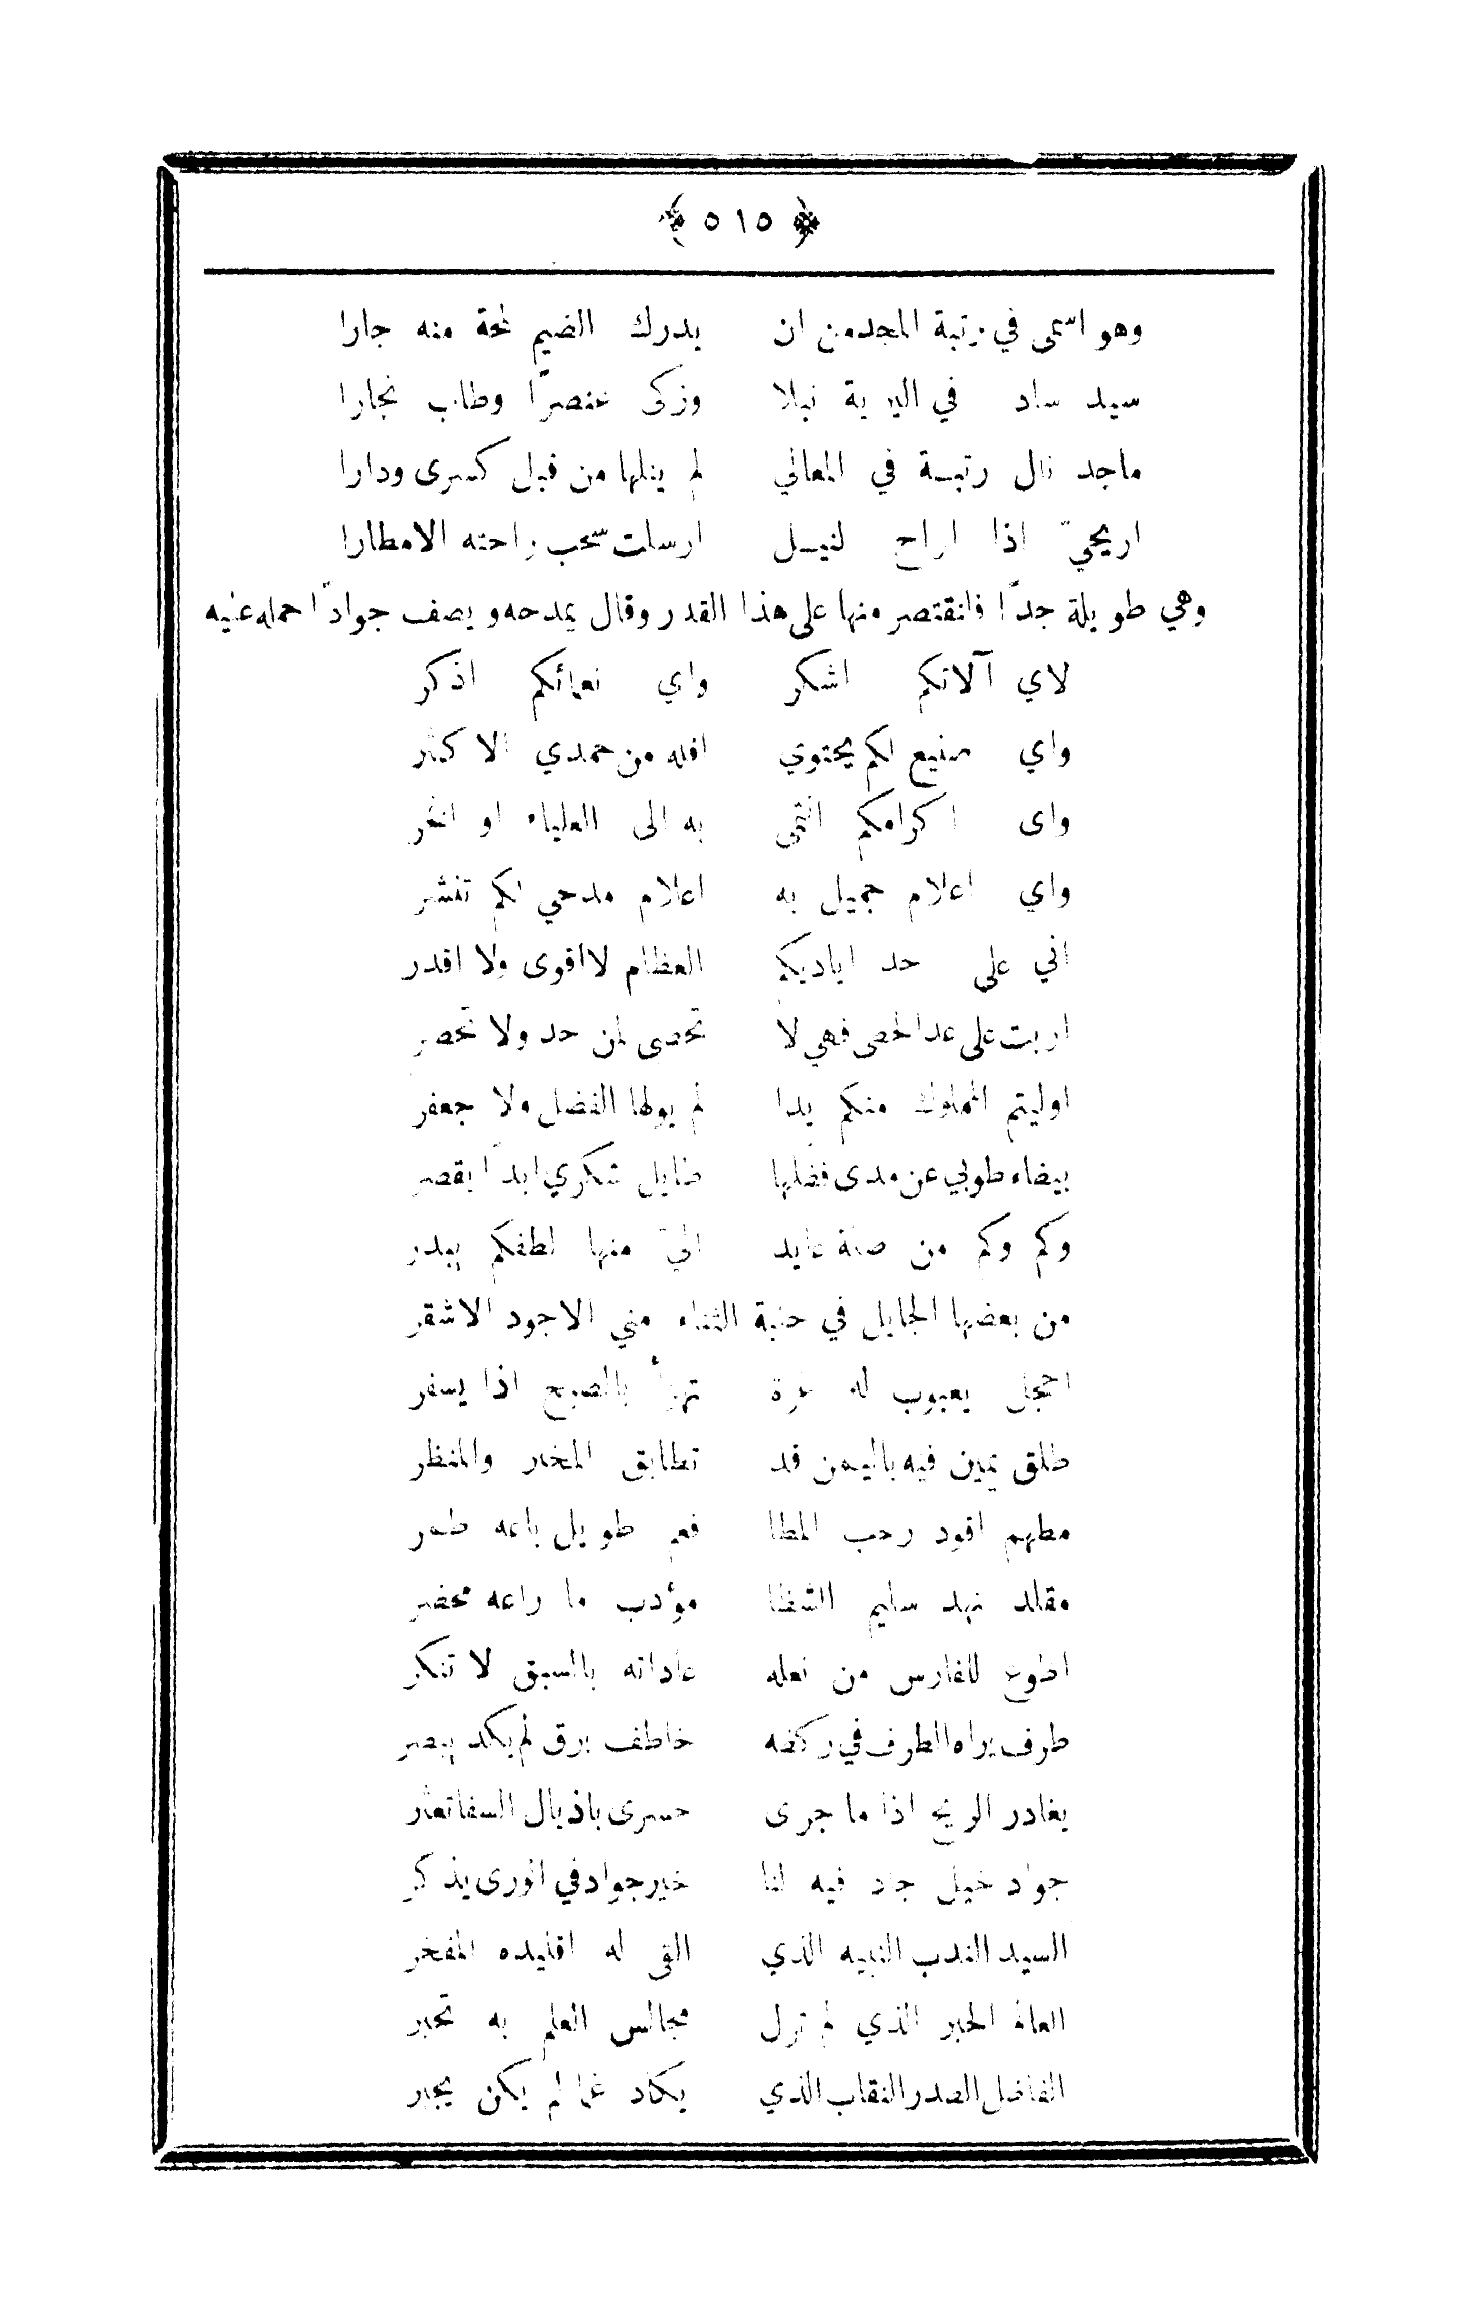 ﴿ ٥١٥ ﴾
وهو اسمى في رتبة المجد من ان يدرك الضيم لمحة منه جارا
سيد ساد في البرية نبلا وزكى عنصرًا وطاب نجارا
ماجد نال رتبة في المعالي لم ينلها من قبل كسرى ودارا
اريحيّ اذا اراح لنيل ارسلت سحب راحته الامطارا
وهي طويلة جدًّا فانقتصر منها على هذا القدر وقال يمدحه ويصف جوادًا حمله عليه
لاي آلائكم اشكر واي نعمائكم اذكر
واي صنيع لكم يحتوي اقله من حمدي الاكثر
واى اكرامكم انتمى به الى العلياء او افخر
واي اعلام جميل به اعلام مدحي لكم تنشر
اني على حد اياديكم العظام لا اقوى ولا اقدر
اربت على عد الحصى فهي لا تحصى لمن حد ولا تحصر
اوليتم المملوك منكم يدا لم يولها الفضل ولا جعفر
بيضاء طولي عن مدى فضلها طايل شكري ابدًا يقصر
وكم وكم من صلة عايد اليّ منها لطفكم يبدر
من بعضها الجايل في حلبة الثناء مني الاجود الاشقر
احجل يعبوب له غرة تهزأ بالصبح اذا يسفر
طلق يمين فيه باليمن قد تطابق المخبر والمنظر
مطهم اقود رحب المطا فعم طويل باعه طمر
مقلد نهد سليم الشظا مؤدب ما راعه محضر
اطوع للفارس من نعله عاداته بالسبق لا تنكر
طرف يراه الطرف في ركضه خاطف برق لم يكد يبصر
يغادر الريح اذا ما جرى حسرى باذيال السفا تعثر
جواد خيل جاد فيه لنا خير جواد في الورى يذكر
السيد الندب النبيه الذي القى له اقليده المفخر
العالم الحبر الذي لم تزل مجالس العلم به تحبر
الفاضل الصدر النقاب الذي يكاد عما لم يكن يخبر